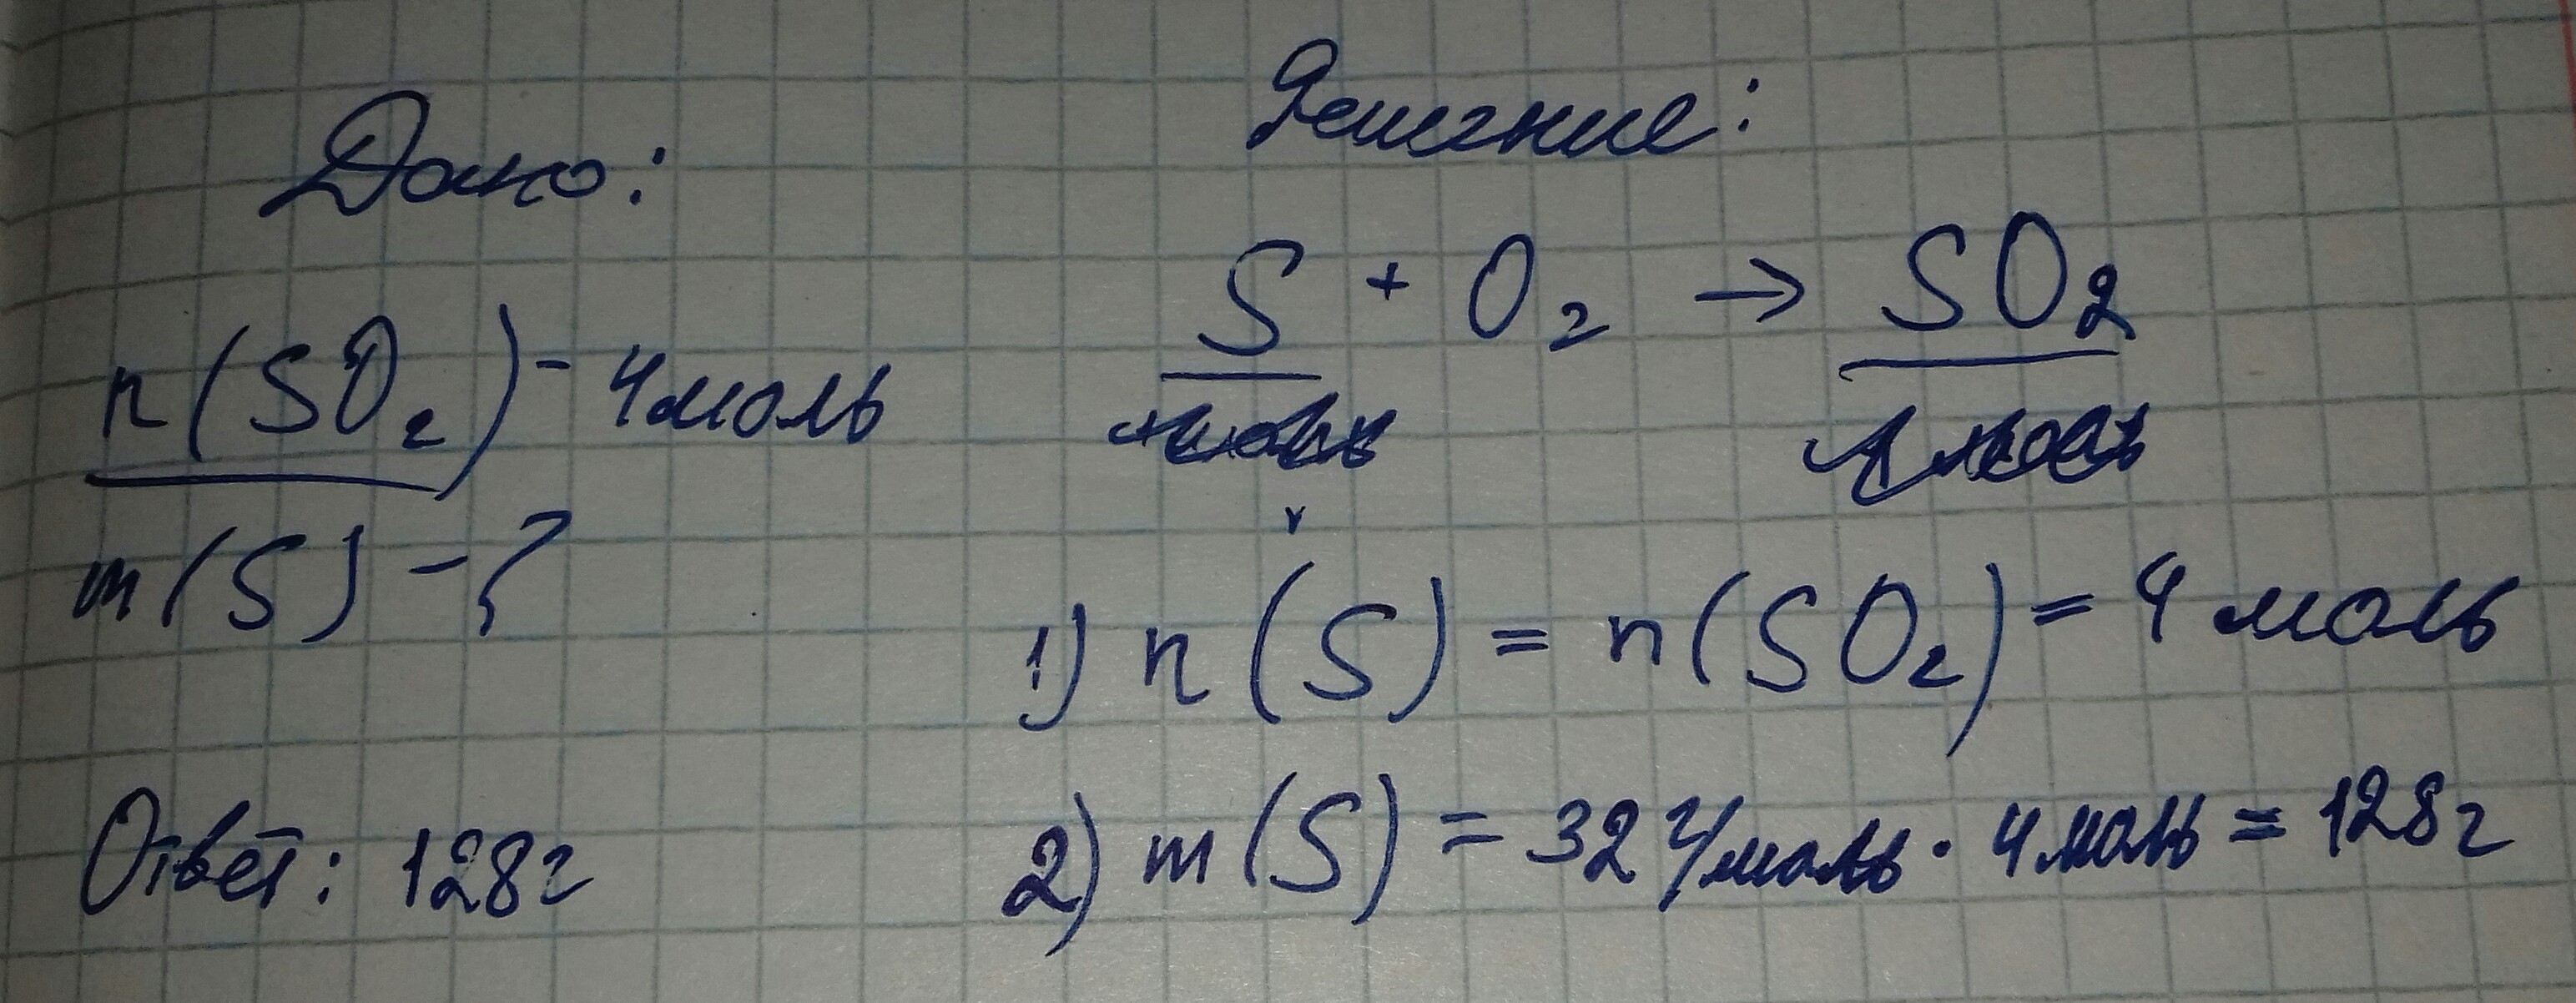 Дано:
n(SO₂) - 4 моль
m(S) - ?
Ответ: 128г
Решение:
S + O₂ → SO₂
1) n(S) = n(SO₂) = 4 моль
2) m(S) = 32 г/моль · 4 моль = 128г